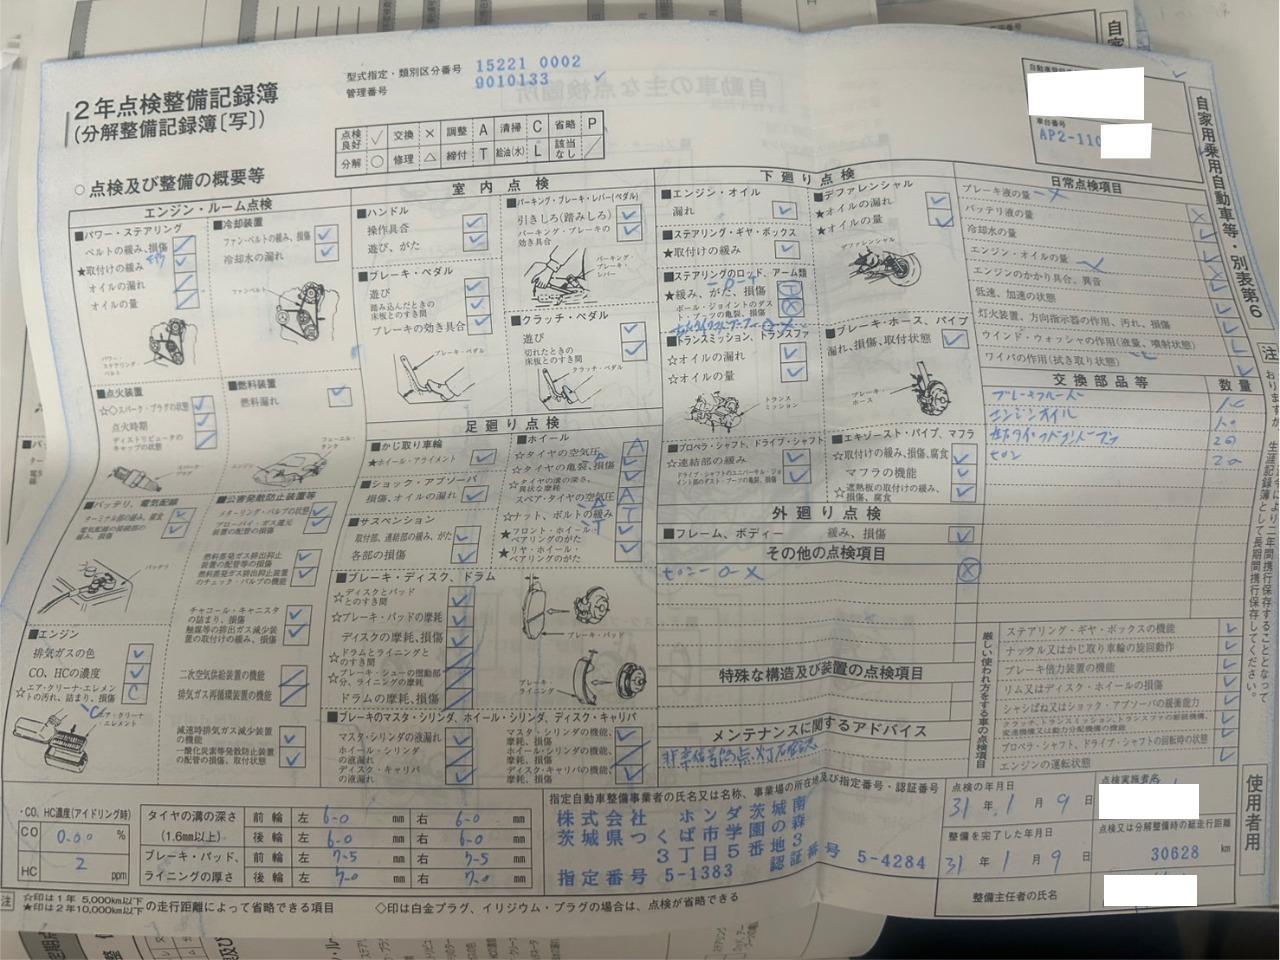 ２年点検整備記録簿
(分解整備記録簿〔写〕)
型式指定・類別区分番号 15221 0002
管理番号 9010133
点検良好 ✓ 交換 × 調整 A 清掃 C 省略 P
分解 ○ 修理 △ 締付 T 給油(水) L 該当なし ／
車台番号
AP2-110
自家用乗用自動車等・別表第６
○点検及び整備の概要等
エンジン・ルーム点検
■パワー・ステアリング
ベルトの緩み、損傷
★取付けの緩み
オイルの漏れ
オイルの量
パワー・ステアリング・ベルト
■冷却装置
ファン・ベルトの緩み、損傷
冷却水の漏れ
ファンベルト
■点火装置
☆◇スパーク・プラグの状態
点火時期
ディストリビュータのキャップの状態
スパーク・プラグ
■燃料装置
燃料漏れ
フューエル・タンク
エンジン
■バッテリ、電気配線
ターミナル部の緩み、腐食
電気配線の接続部の緩み、損傷
バッテリ
■公害発散防止装置等
メターリング・バルブの状態
ブローバイ・ガス還元装置の配管の損傷
燃料蒸発ガス排出抑止装置の配管等の損傷
燃料蒸発ガス排出抑止装置のチェック・バルブの機能
チャコール・キャニスタの詰まり、損傷
触媒等の排出ガス減少装置の取付けの緩み、損傷
二次空気供給装置の機能
排気ガス再循環装置の機能
減速時排気ガス減少装置の機能
一酸化炭素等発散防止装置の配管の損傷、取付状態
■エンジン
排気ガスの色
CO、HCの濃度
☆エア・クリーナ・エレメントの汚れ、詰まり、損傷 C
エア・クリーナ・エレメント
室内点検
■ハンドル
操作具合
遊び、がた
■ブレーキ・ペダル
遊び
踏み込んだときの床板とのすき間
ブレーキの効き具合
ブレーキ・ペダル
■パーキング・ブレーキ・レバー(ペダル)
引きしろ(踏みしろ)
パーキング・ブレーキの効き具合
パーキング・ブレーキ・レバー
■クラッチ・ペダル
遊び
切れたときの床板とのすき間
クラッチ・ペダル
足廻り点検
■かじ取り車輪
★ホイール・アライメント
■ショック・アブソーバ
損傷、オイルの漏れ
■サスペンション
取付部、連結部の緩み、がた
各部の損傷
■ホイール
☆タイヤの空気圧 A
☆タイヤの亀裂、損傷
☆タイヤの溝の深さ、異状な摩耗
スペア・タイヤの空気圧 A
☆ナット、ボルトの緩み T
★フロント・ホイール・ベアリングのがた
★リヤ・ホイール・ベアリングのがた
■ブレーキ・ディスク、ドラム
☆ディスクとパッドとのすき間
☆ブレーキ・パッドの摩耗
ディスクの摩耗、損傷
☆ドラムとライニングとのすき間
☆ブレーキ・シューの摺動部分、ライニングの摩耗
ドラムの摩耗、損傷
ブレーキ・パッド
ブレーキ・ライニング
■ブレーキのマスタ・シリンダ、ホイール・シリンダ、ディスク・キャリパ
マスタ・シリンダの液漏れ
ホイール・シリンダの液漏れ
ディスク・キャリパの液漏れ
マスタ・シリンダの機能、摩耗、損傷
ホイール・シリンダの機能、摩耗、損傷
ディスク・キャリパの機能、摩耗、損傷
下廻り点検
■エンジン・オイル
漏れ
■ステアリング・ギヤ・ボックス
★取付けの緩み
■ステアリングのロッド、アーム類
★緩み、がた、損傷 T
ボール・ジョイントのダスト・ブーツの亀裂、損傷
■トランスミッション、トランスファ
☆オイルの漏れ
☆オイルの量
トランスミッション
■プロペラ・シャフト、ドライブ・シャフト
☆連結部の緩み
ドライブ・シャフトのユニバーサル・ジョイント部のダスト・ブーツの亀裂、損傷
■デファレンシャル
★オイルの漏れ
★オイルの量
デファレンシャル
■ブレーキ・ホース、パイプ
漏れ、損傷、取付状態
ブレーキ・ホース
■エキゾースト・パイプ、マフラ
☆取付けの緩み、損傷、腐食
マフラの機能
☆遮熱板の取付けの緩み、損傷、腐食
外廻り点検
■フレーム、ボディー 緩み、損傷
その他の点検項目
特殊な構造及び装置の点検項目
メンテナンスに関するアドバイス
日常点検項目
ブレーキ液の量
バッテリ液の量
冷却水の量
エンジン・オイルの量
エンジンのかかり具合、異音
低速、加速の状態
灯火装置、方向指示器の作用、汚れ、損傷
ウインド・ウォッシャの作用(液量、噴射状態)
ワイパの作用(拭き取り状態)
交換部品等 数量
ブレーキフルード
エンジンオイル
厳しい使われ方をする車の点検項目
ステアリング・ギヤ・ボックスの機能
ナックル又はかじ取り車輪の旋回動作
ブレーキ倍力装置の機能
リム又はディスク・ホイールの損傷
シャシばね又はショック・アブソーバの緩衝能力
クラッチ、トランスミッション、トランスファの断続機構、変速機構又は動力分配機構の機能
プロペラ・シャフト、ドライブ・シャフトの回転時の状態
エンジンの運転状態
・CO、HC濃度(アイドリング時)
CO 0.00 %
HC 2 ppm
タイヤの溝の深さ (1.6mm以上)
前輪 左 6.0 mm 右 6.0 mm
後輪 左 6.0 mm 右 6.0 mm
ブレーキ・パッド、ライニングの厚さ
前輪 左 7.5 mm 右 7.5 mm
後輪 左 7.0 mm 右 7.0 mm
指定自動車整備事業者の氏名又は名称、事業場の所在地及び指定番号・認証番号
株式会社 ホンダ茨城南
茨城県つくば市学園の森
３丁目５番地３
指定番号 5-1383 認証番号 5-4284
点検の年月日
31年 1月 9日
整備を完了した年月日
31年 1月 9日
整備主任者の氏名
点検実施者名
点検又は分解整備時の総走行距離
30628 km
使用者用
注 ☆印は１年 5,000km以下
★印は２年10,000km以下 の走行距離によって省略できる項目
◇印は白金プラグ、イリジウム・プラグの場合は、点検が省略できる